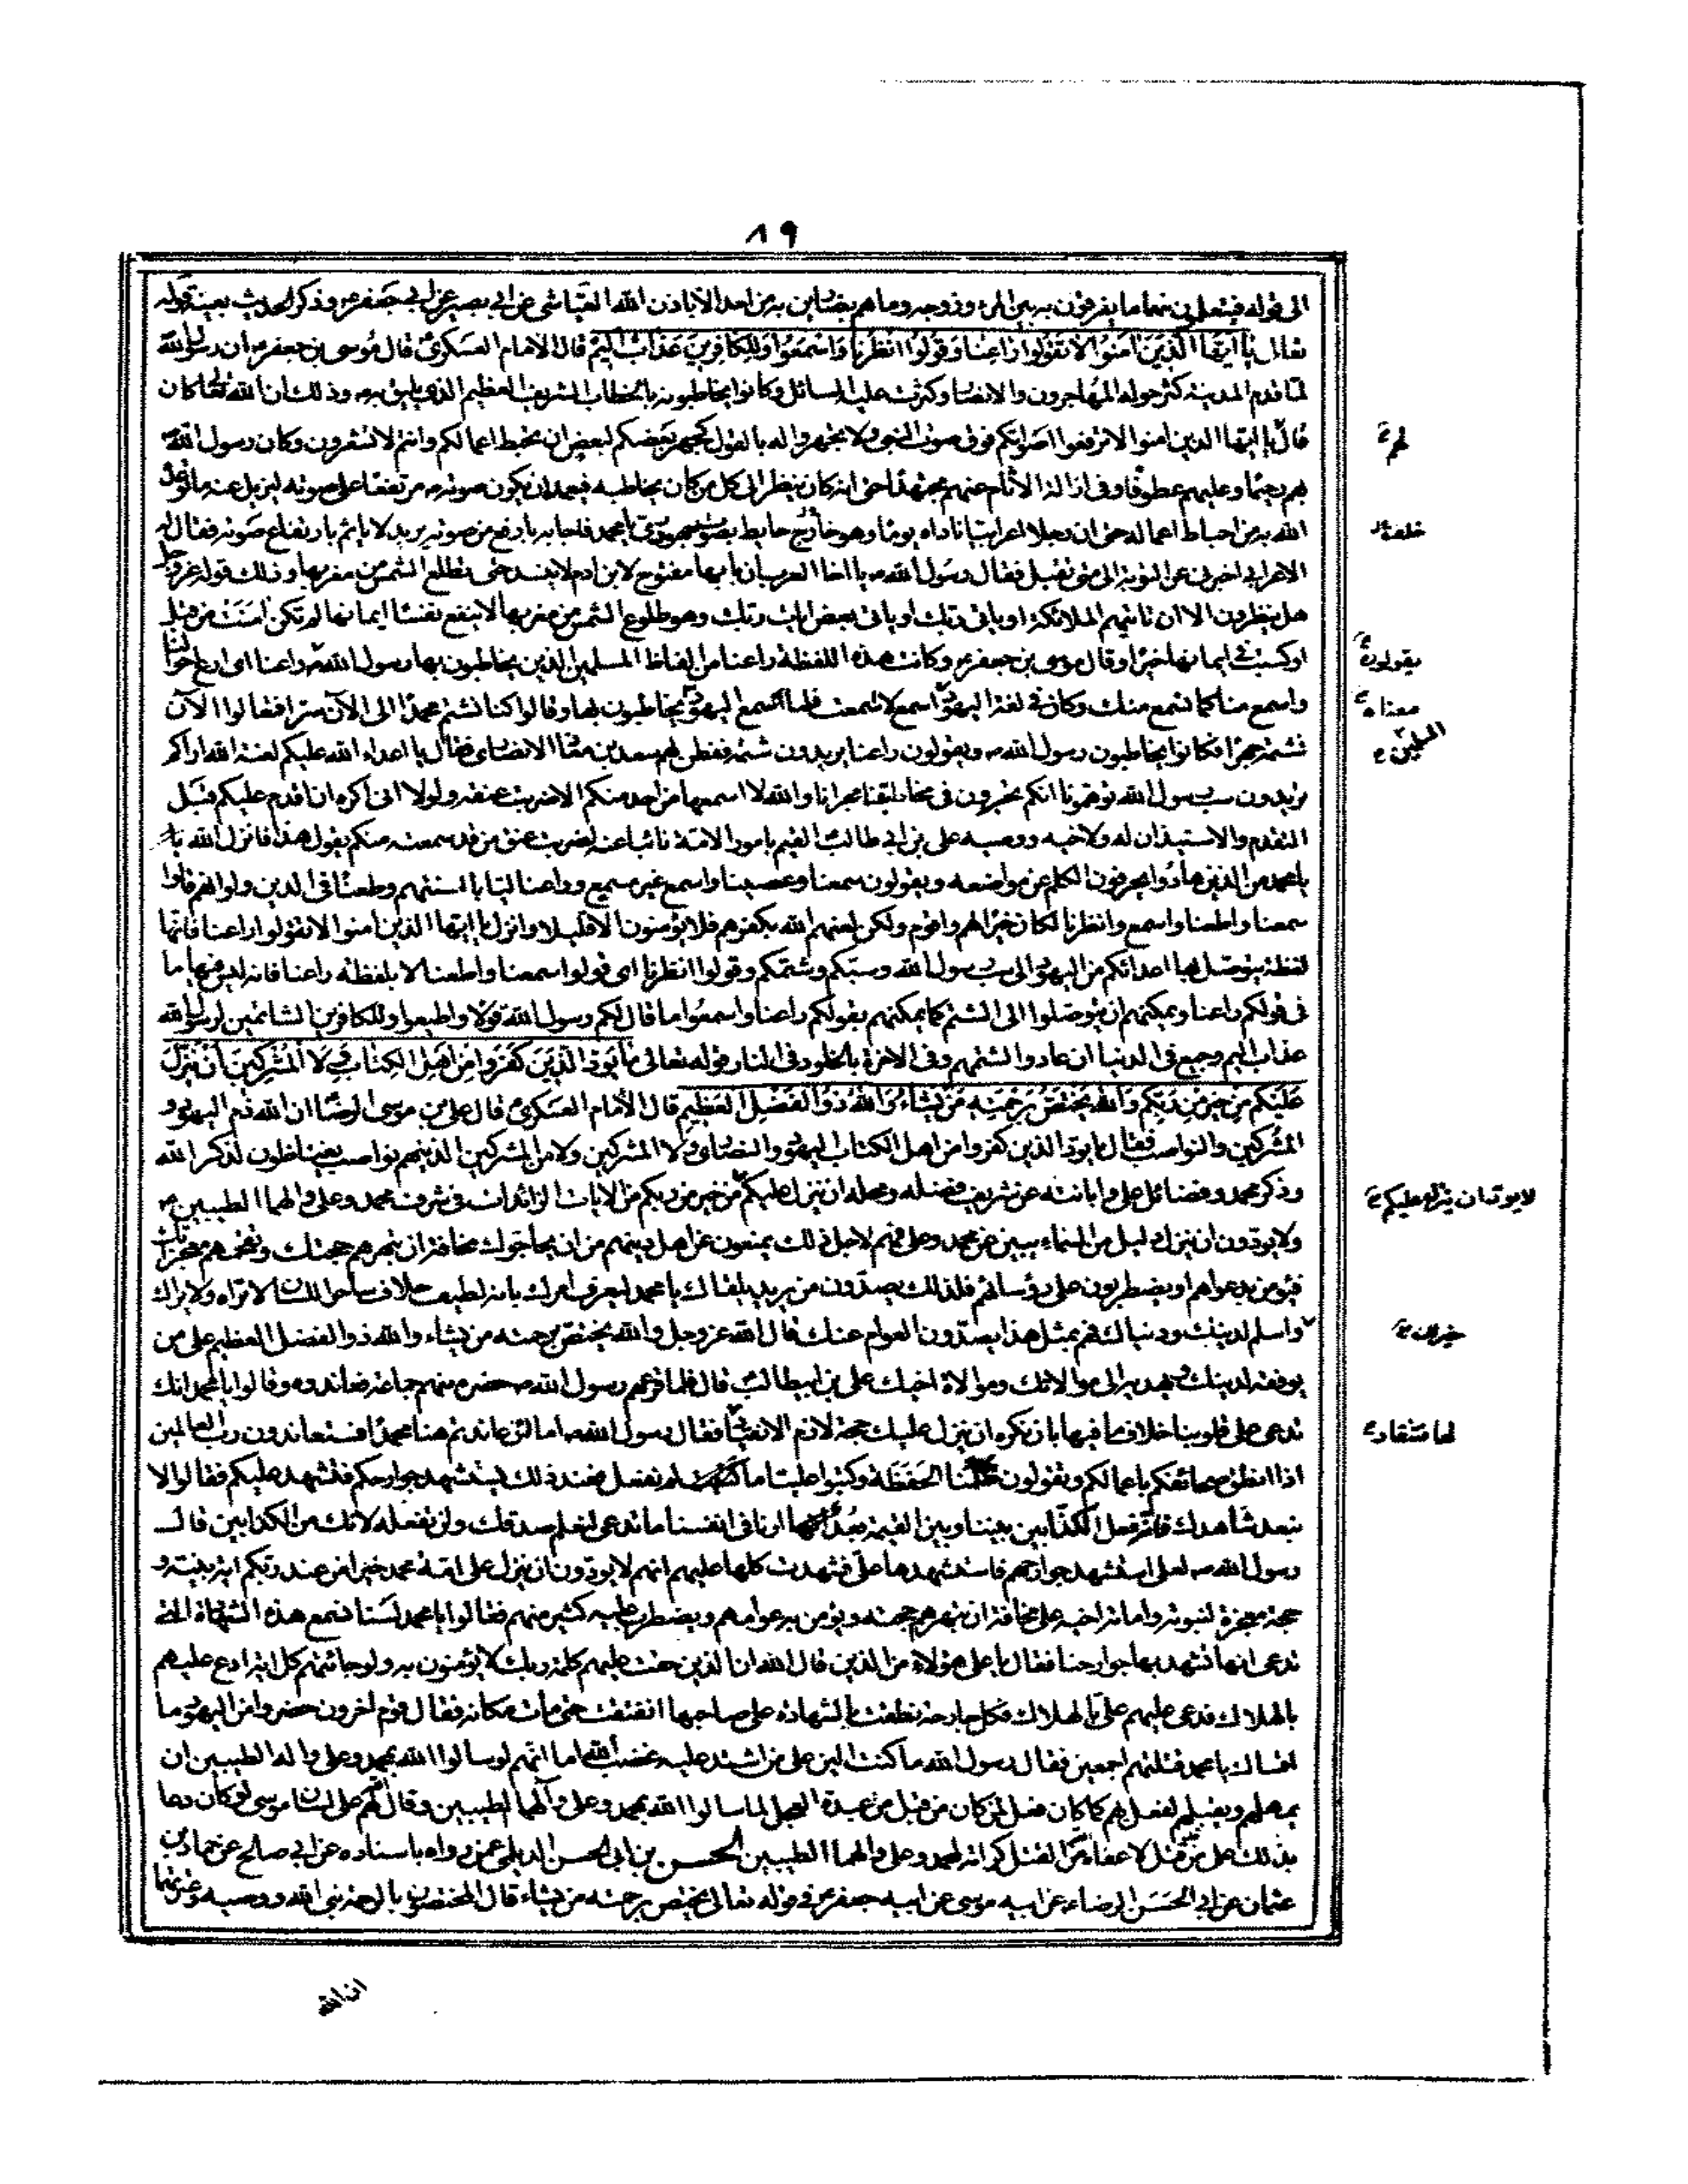 ٨٩
الى قوله فيتعلمون منهما ما يفرقون به بين المرء وزوجه وما هم بضارين به من احد الا باذن الله العياشي عن ابي بصير عن ابي جعفر وذكر الحديث بعينه قوله
تعالى يا ايها الذين امنوا لا تقولوا راعنا وقولوا انظرنا واسمعوا وللكافرين عذاب اليم قال الامام العسكري قال موسى بن جعفر ان رسول الله
لما قدم المدينة كثر حوله المهاجرون والانصار وكثرت عليه المسائل وكانوا يخاطبونه بالخطاب الشريف العظيم الذي يليق به وذلك ان الله تعالى كان
قال يا ايها الذين امنوا لا ترفعوا اصواتكم فوق صوت النبي ولا تجهروا له بالقول كجهر بعضكم لبعض ان تحبط اعمالكم وانتم لا تشعرون وكان رسول الله
بهم رحيما وعليهم عطوفا وفي ازالة الاثام عنهم مجتهدا حتى انه كان ينظر الى كل من كان يخاطبه فيعمد ان يكون صوته مرتفعا على صوته ليزيل عنه ما توعد
الله به من احباط اعماله حتى ان رجلا اعرابيا ناداه يوما وهو خلف حايط بصوت جهوري يا محمد فاجابه بارفع من صوته يريد لا ياثم بارتفاع صوته فقال له
الاعرابي اخبرني عن التوبة الى متى تقبل فقال رسول الله يا اخا العرب ان بابها مفتوح لابن ادم لا يسد حتى تطلع الشمس من مغربها وذلك قوله عز وجل
هل ينظرون الا ان تاتيهم الملائكة او ياتي ربك او ياتي بعض ايات ربك وهو طلوع الشمس من مغربها لا ينفع نفسا ايمانها لم تكن امنت من قبل
او كسبت في ايمانها خيرا وقال موسى بن جعفر وكانت هذه اللفظة راعنا من الفاظ المسلمين الذين يخاطبون بها رسول الله راعنا اي ارع احوالنا
واسمع منا كما نسمع منك وكان في لغة اليهود اسمع لا سمعت فلما سمع اليهود يخاطبون بها وقالوا كنا نشتم محمدا الى الآن سرا فتعالوا الآن
نشتمه جهرا فكانوا يخاطبون رسول الله ويقولون راعنا يريدون شتمه ففطن لهم سعد بن معاذ الانصاري فقال يا اعداء الله عليكم لعنة الله اراكم
تريدون سب رسول الله توهمونا انكم تجرون في مخاطبته مجرانا والله لا اسمعها من احد منكم الا ضربت عنقه ولولا اني اكره ان اقدم عليكم قبل
التقدم والاستيذان له ولاخيه ووصيه علي بن ابي طالب القيم بامور الامة نائبا عنه لضربت عنق من قد سمعته منكم يقول هذا فانزل الله يا
يا محمد من الذين هادوا يحرفون الكلم عن مواضعه ويقولون سمعنا وعصينا واسمع غير مسمع وراعنا ليا بالسنتهم وطعنا في الدين ولو انهم قالوا
سمعنا واطعنا واسمع وانظرنا لكان خيرا لهم واقوم ولكن لعنهم الله بكفرهم فلا يؤمنون الا قليلا وانزل يا ايها الذين امنوا لا تقولوا راعنا فانها
لفظة يتوصل بها اعدائكم من اليهود الى سب رسول الله وسبكم وشتمكم وقولوا انظرنا اي قولوا سمعنا واطعنا لا بلفظة راعنا فانه ليس فيها ما
في قولكم راعنا ويمكنهم ان يتوصلوا الى الشتم كما يمكنهم بقولكم راعنا واسمعوا ما قال لكم رسول الله قولا واطيعوا وللكافرين الشاتمين لرسول الله
عذاب اليم وجيع في الدنيا ان عادوا لشتمهم وفي الاخرة بالخلود في النار قوله تعالى ما يود الذين كفروا من اهل الكتاب ولا المشركين ان ينزل
عليكم من خير من ربكم والله يختص برحمته من يشاء والله ذو الفضل العظيم قال الامام العسكري قال علي بن موسى الرضا ان الله ذم اليهود و
المشركين والنواصب فقال ما يود الذين كفروا من اهل الكتاب اليهود والنصارى ولا المشركين ولا من المشركين الذينهم نواصب يغتاظون لذكر الله
وذكر محمد وفضائل علي وابانته عن شريف فضله ومحله ان ينزل عليكم من خير من ربكم من الايات الزائدات في شرف محمد وعلي والهما الطيبين
ولا يودون ان ينزل دليل من السماء يبين عن محمد وعلي فهم لاجل ذلك يمنعون عن اهل دينهم من ان يحاجوك مخافة ان تبهرهم حجتك وتفحمهم معجزاتك
فيؤمن بك عوامهم او يضطربون على رؤسائهم فلذلك يصدون من يريد لقاك يا محمد ليعرف امرك بانه لطيف خلاف ساحر اللسان لا تراه ولا يراك
واسلم لدينك ودنياك فهم بمثل هذا يصدون العوام عنك قال الله عز وجل والله يختص برحمته من يشاء والله ذو الفضل العظيم على من
يوفقه لدينك ويهديه الى موالاتك وموالاة اخيك علي بن ابيطالب قال فلما قرعهم رسول الله حضره منهم جماعة فعاندوه وقالوا يا محمد انك
تدعي على قلوبنا خلاف ما فيها بان نكره ان ينزل عليك حجة لازم الانقياد فقال رسول الله اما لئن عاندتم هنا محمدا فستعاندون رب العالمين
اذا انطق صحائفكم باعمالكم وتقولون ظلمتنا الحفظة وكتبوا علينا ما لم نفعل فعند ذلك يستشهد جوارحكم فتشهد عليكم فقالوا لا
تبعد شاهدك فانه فعل الكذابين بيننا وبين القيمة بعد ارنا في انفسنا ما تدعي لنعلم صدقك ولن تفعله لانك من الكذابين قال
رسول الله لعلي استشهد جوارحهم فاستشهدها علي فشهدت كلها عليهم انهم لا يودون ان ينزل على امة محمد خير من عند ربكم اية بينة و
حجة معجزة لنبوته وامامة اخيه علي مخافة ان تبهرهم حجته ويؤمن به عوامهم ويضطرب عليه كثير منهم فقالوا يا محمد لسنا نسمع هذه الشهادة التي
تدعي انها تشهد بها جوارحنا فقال يا علي هؤلاء من الذين قال الله ان الذين حقت عليهم كلمة ربك لا يؤمنون به ولو جائتهم كل اية ادع عليهم
بالهلاك فدعى عليهم علي بالهلاك فكل جارحة نطقت بالشهادة على صاحبها انفتقت حتى مات مكانه فقال قوم اخرون حضروا من اليهود ما
اقساك يا محمد قتلتهم اجمعين فقال رسول الله ما كنت الين على من اشتد عليه غضب الله اما انهم لو سالوا الله بمحمد وعلي واله الطيبين ان
يمهلهم ويقيلهم لفعل بهم كما كان فعل لمن كان من قبل من عبدة العجل لما سالوا الله بمحمد وعلي وآلهما الطيبين وقال الله لهم على لسان موسى لو كان دعا
بذلك على من قتل لاعفاه من القتل كرامة لمحمد وعلي والهما الطيبين الحسن بن ابي الحسن الديلمي عمن رواه باسناده عن ابي صالح عن حماد بن
عثمان عن ابي الحسن الرضاء عن ابيه موسى عن ابيه جعفر في قوله تعالى يختص برحمته من يشاء قال المختصون بالرحمة نبي الله ووصيه وعترتهما
لهم
خلف
يقولون
معناه
المسلمين
لا يودون ان ينزل عليكم
خير لك
لها منقاد
ان الله